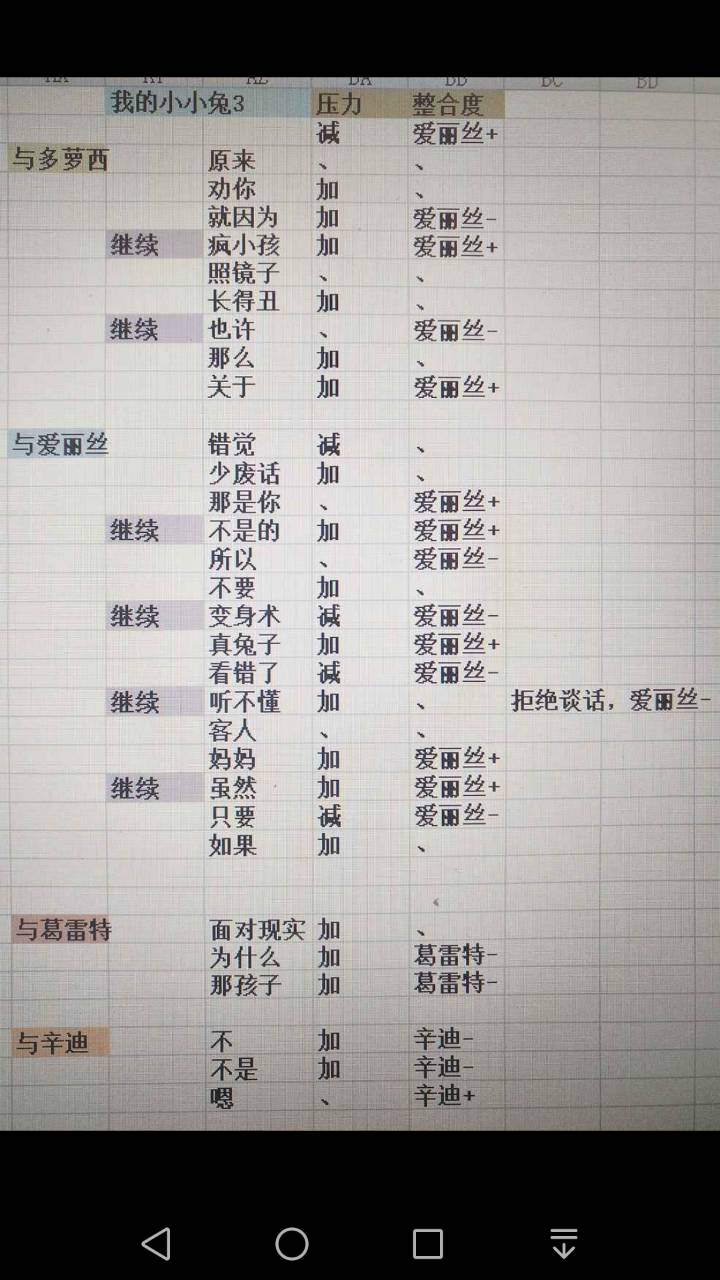 我的小小兔3 压力 整合度
减 爱丽丝+
与多萝西 原来 、 、
劝你 加 、
就因为 加 爱丽丝-
继续 疯小孩 加 爱丽丝+
照镜子 、 、
长得丑 加 、
继续 也许 、 爱丽丝-
那么 加 、
关于 加 爱丽丝+
与爱丽丝 错觉 减 、
少废话 加 、
那是你 、 爱丽丝+
继续 不是的 加 爱丽丝+
所以 、 爱丽丝-
不要 加 、
继续 变身术 减 爱丽丝-
真兔子 加 爱丽丝+
看错了 减 爱丽丝-
继续 听不懂 加 、 拒绝谈话，爱丽丝-
客人 、 、
妈妈 加 爱丽丝+
继续 虽然 加 爱丽丝+
只要 减 爱丽丝-
如果 加 、
与葛雷特 面对现实 加 、
为什么 加 葛雷特-
那孩子 加 葛雷特-
与辛迪 不 加 辛迪-
不是 加 辛迪-
嗯 、 辛迪+